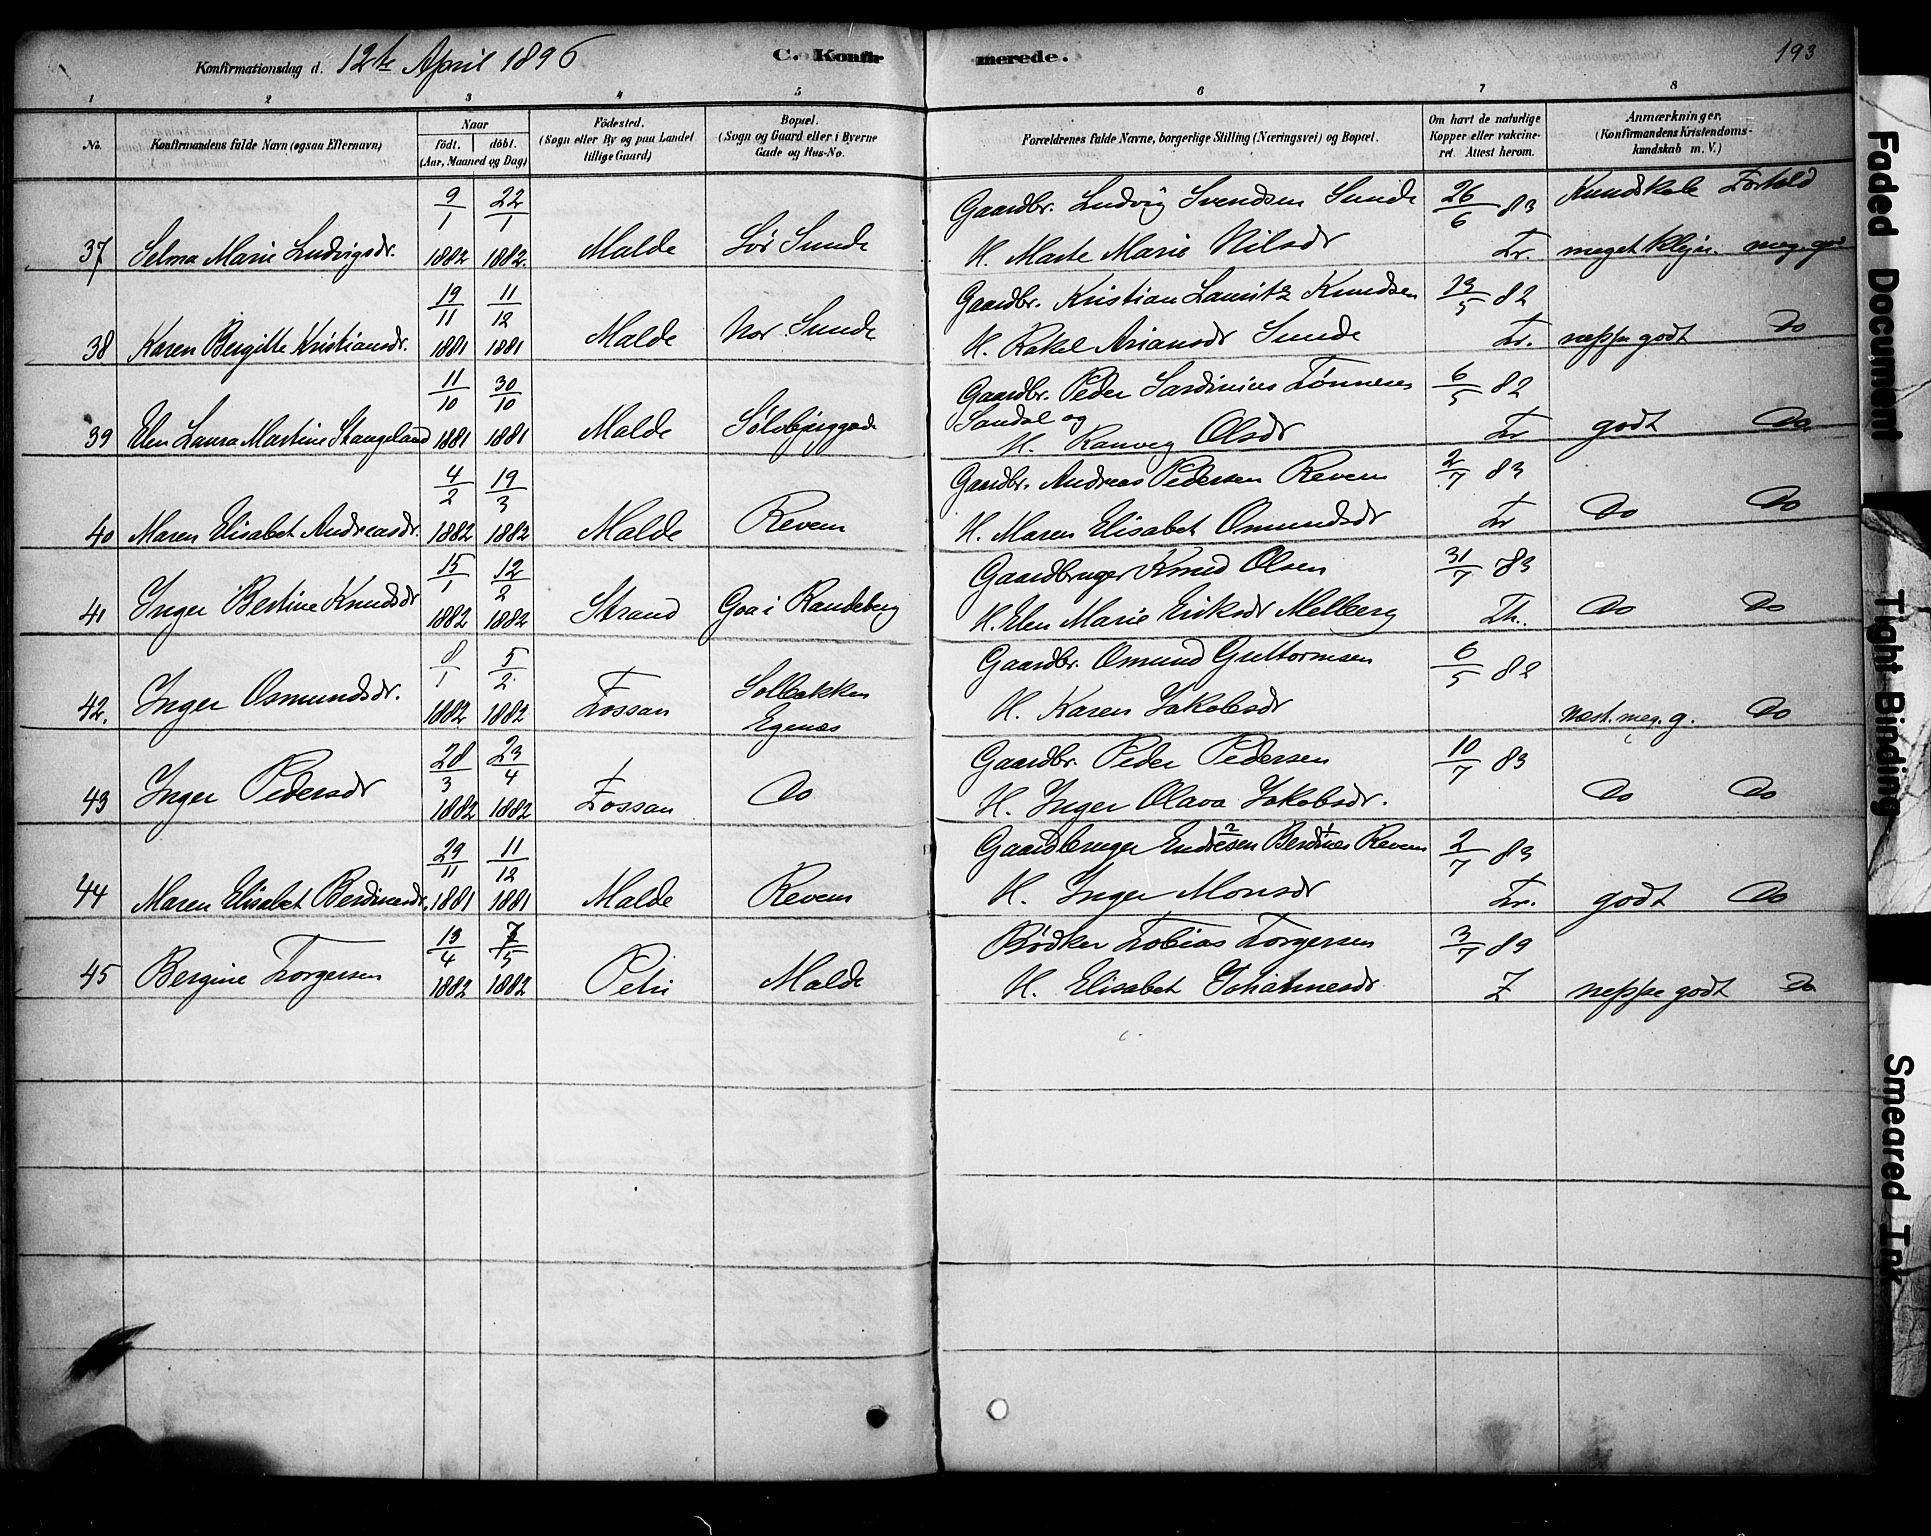 Konfirmationsdag d. 12te April 1896 C. Konfirmerede. 193
1 2 3 4 5 6 7 8
No. Konfirmandens fulde Navn (ogsaa Efternavn) Naar födt. döbt. (Aar, Maaned og Dag) Födested. (Sogn eller By og paa Landet tillige Gaard) Bopæl. (Sogn og Gaard eller i Byerne Gade og Hus-No. Forældrenes fulde Navne, borgerlige Stilling (Næringsvei) og Bopæl. Om havt de naturlige Kopper eller vakcineret. Attest herom. Anmærkninger. (Konfirmandens Kristendomskundskab m. V.)
Kundskab Forhold
37 Selma Marie Ludvigsdr. 9/1 1882 22/1 1882. Malde Sör Sunde Gaardbr. Ludvig Svendsen Sunde
H. Marte Marie Nilsdr 26/6 83 Tr. meget klejn. meg. god
38 Karen Bergitte Kristiansdr. 19/11 1881 11/12 1881 Malde Nor Sunde Gaardbr. Kristian Lauritz Knudsen
H. Rakel Ariansdr Sunde 23/5 82 Tr. neppe godt Do
39 Elen Laura Martine Stangeland 11/10 1881 30/10 1881 Malde Sölvbjerggade Gaardbr. Peder Sardinius Tönnesen
Sandal og
H. Ranveg Olsdr 6/5 82 Tr godt Do
40 Maren Elisabet Andreasdr. 4/2 1882 19/3 1882 Malde Revem Gaardbr. Andreas Pedersen Revem
H. Maren Elisabet Osmundsdr 2/7 83 Tr Do Do
41 Inger Bertine Knudsdr 15/1 1882 12/2 1882 Strand Goa i Randeberg Gaardbruger Knud Olsen
H. Elen Marie Eriksdr Melberg 31/7 83 Th. Do Do
42. Inger Osmundsdr. 8/1 1882 5/2 1882 Fossan Solbakken
Egenæs Gaardbr. Osmund Guttormsen
H. Karen Jakobsdr 6/5 82 næst. meg. g. Do
43 Inger Pedersdr 28/3 1882 23/4 1882 Fossan Do Gaardbr. Peder Pedersen
H. Inger Olava Jakobsdr. 10/7 83 Do Do
44 Maren Elisabet Berdinesdr. 29/11 1881 11/12 1881 Malde Revem Gaardbruger Endresen Berdines Revem
H. Inger Monsdr 2/7 83 Tr. godt Do
45 Bergine Torgersen 13/4 1882 7/5 1882 Petri Malde Bödker Tobias Torgersen
H. Elisabet Johannesdr 3/7 89 Z neppe godt Do
Faded Document
Tight Binding
Smeared Ink